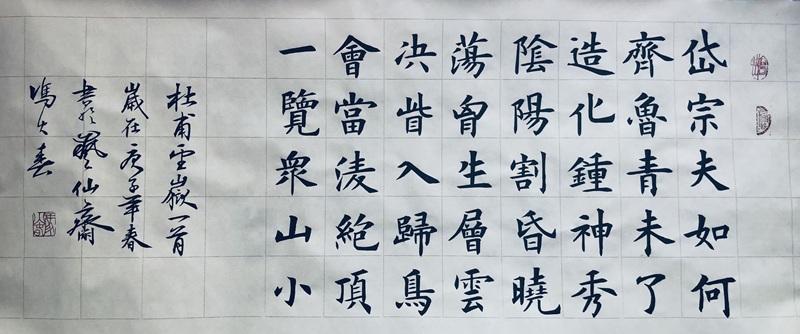 岱宗夫如何
齊魯青未了
造化鍾神秀
陰陽割昏曉
蕩胷生層雲
決眥入歸鳥
會當淩絕頂
一覽衆山小
杜甫望嶽一首
歲在庚子年春
書於藝仙齋
馮大春